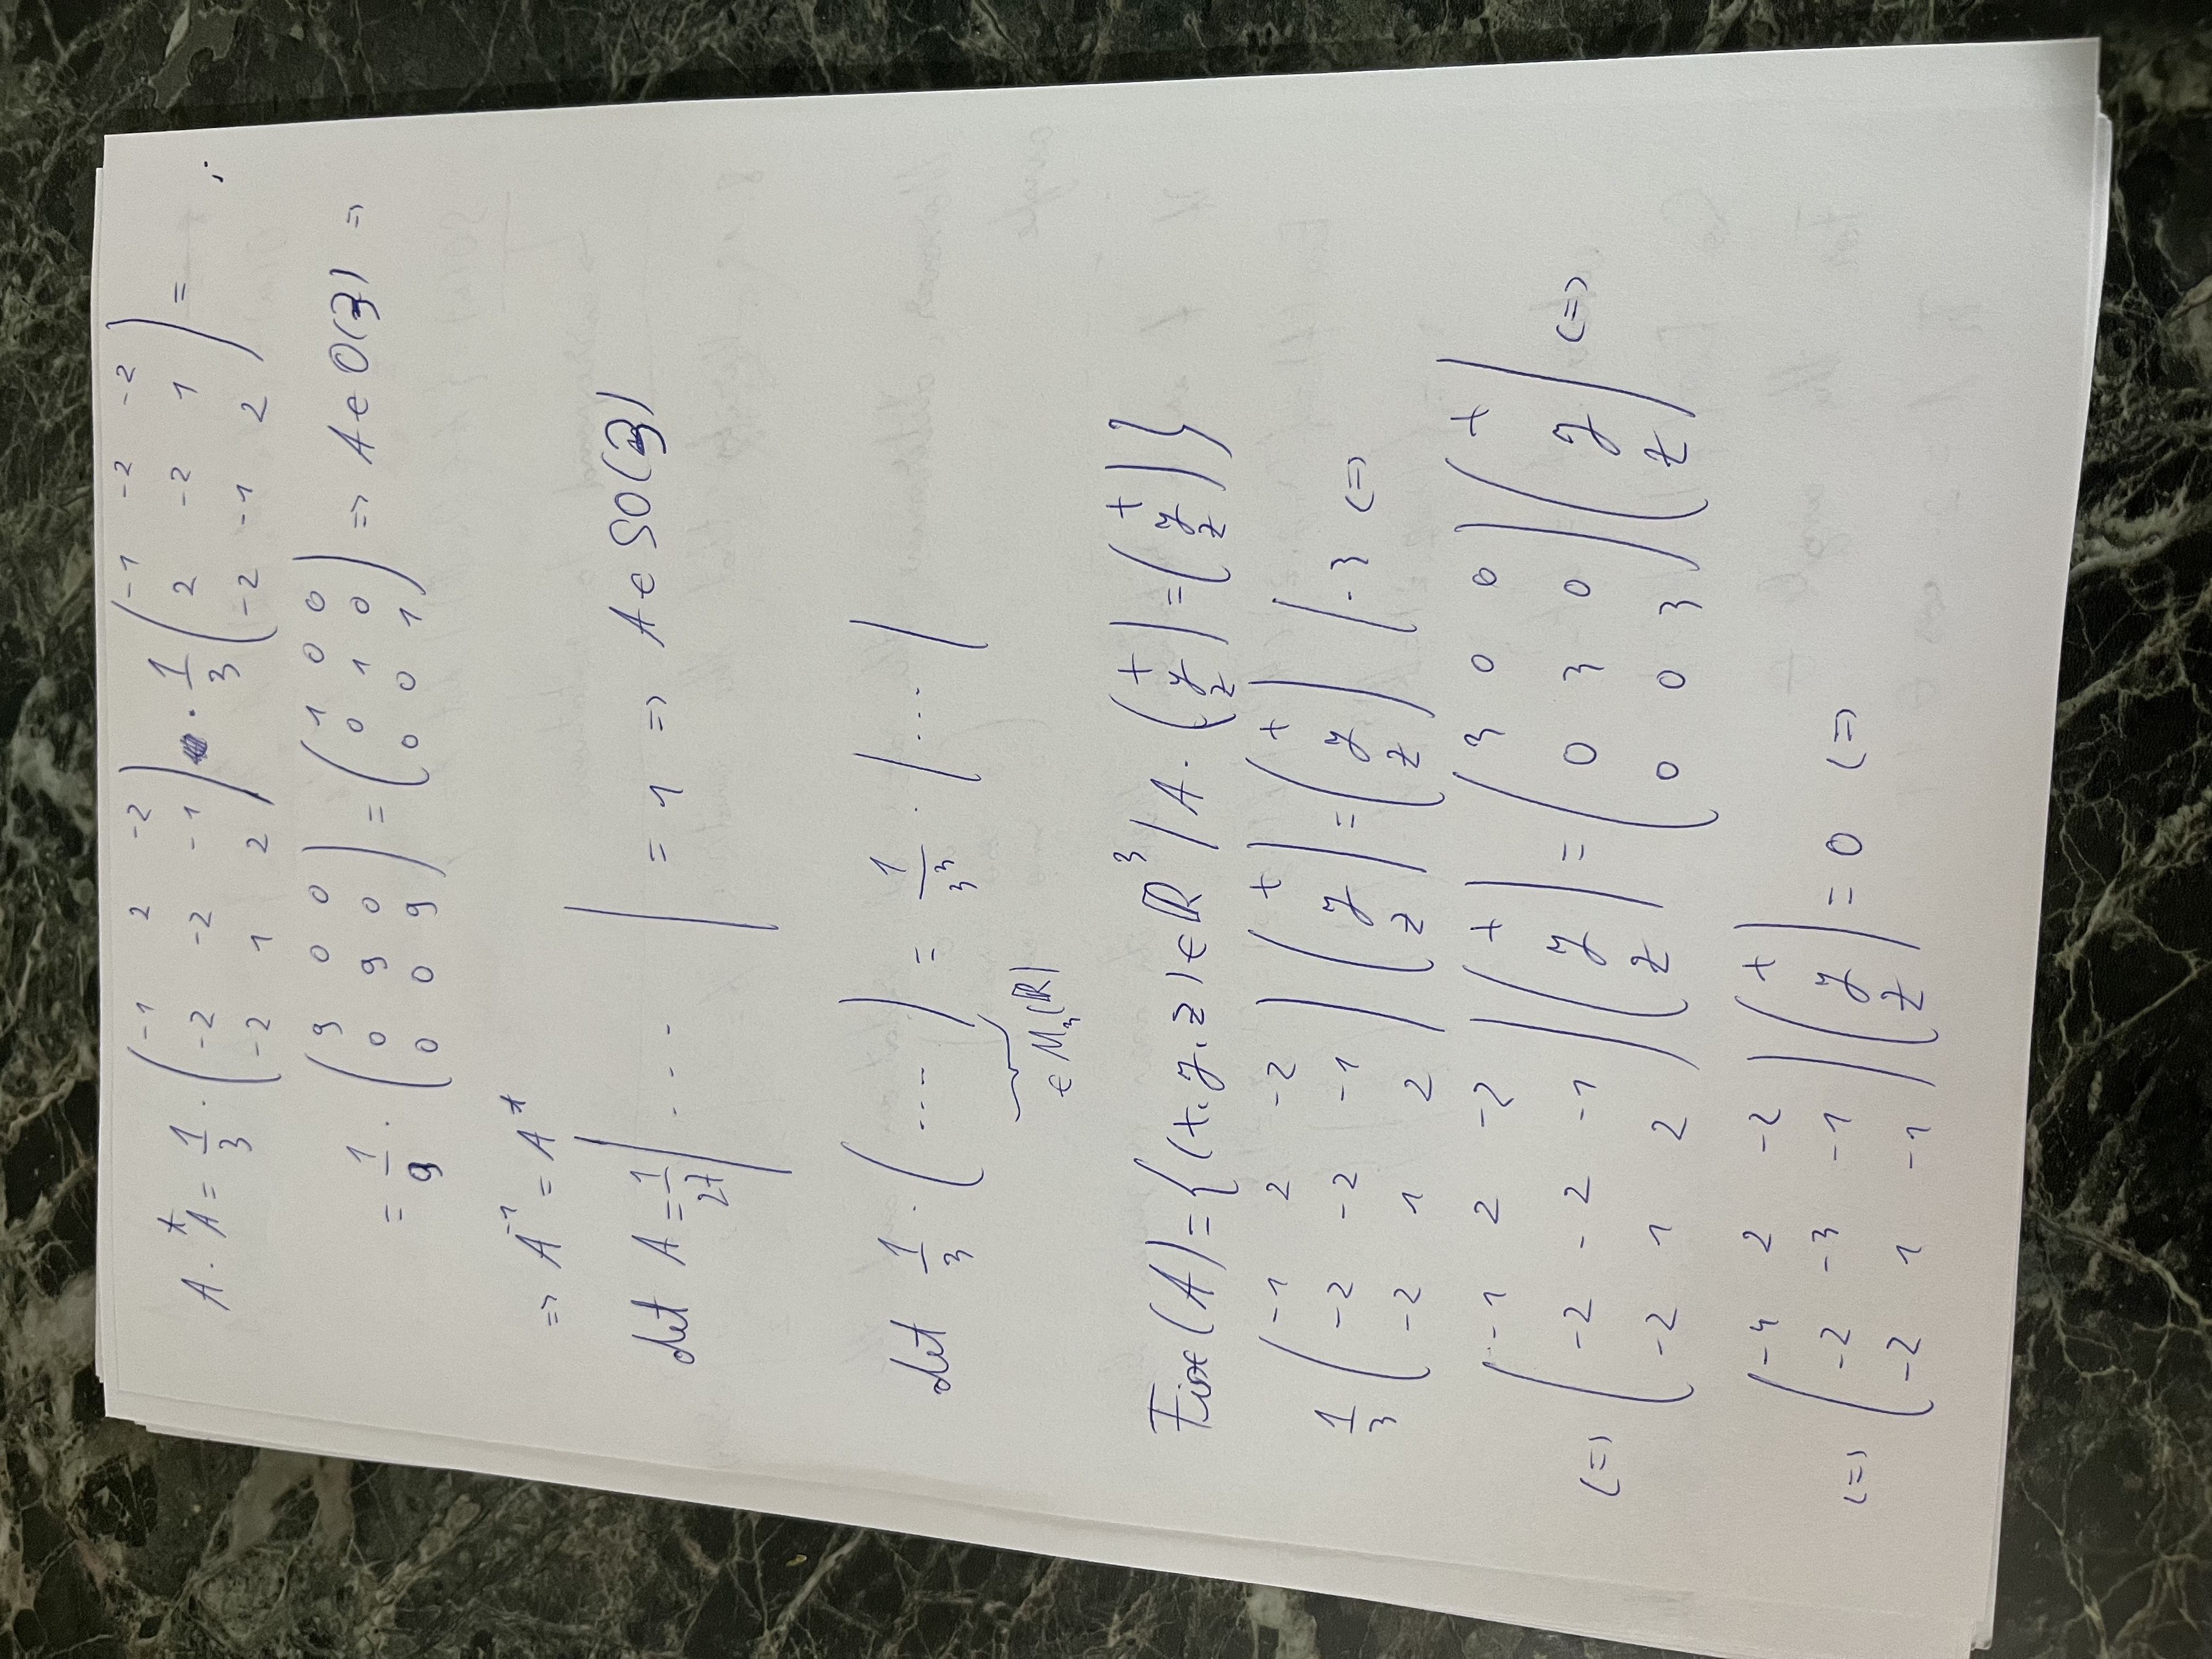 A · ᵗA = 1/3 · ( -1 2 -2 ; -2 -2 -1 ; -2 1 2 ) · 1/3 ( -1 -2 -2 ; 2 -2 1 ; -2 -1 2 ) =
= 1/9 · ( 9 0 0 ; 0 9 0 ; 0 0 9 ) = ( 1 0 0 ; 0 1 0 ; 0 0 1 ) => A ∈ O(3) =>
=> A⁻¹ = Aᵗ
det A = 1/27 | ... | = 1 => A ∈ SO(3)
det 1/3 · ( .... ) = 1/3³ · | ... |
∈ M₃(ℝ)
Fix(A) = { (x, y, z) ∈ ℝ³ / A · ( x ; y ; z ) = ( x ; y ; z ) }
1/3 ( -1 2 -2 ; -2 -2 -1 ; -2 1 2 ) ( x ; y ; z ) = ( x ; y ; z ) | · 3 (=>
(=> ( -1 2 -2 ; -2 -2 -1 ; -2 1 2 ) ( x ; y ; z ) = ( 3 0 0 ; 0 3 0 ; 0 0 3 ) ( x ; y ; z ) (=>
(=> ( -4 2 -2 ; -2 -3 -1 ; -2 1 -1 ) ( x ; y ; z ) = 0 (=>